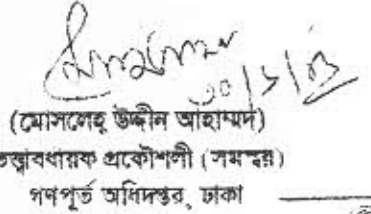 ৩০/১/০৩
(মোসলেহ্ উদ্দীন আহাম্মদ)
তত্ত্বাবধায়ক প্রকৌশলী (সমন্বয়)
গণপূর্ত অধিদপ্তর, ঢাকা